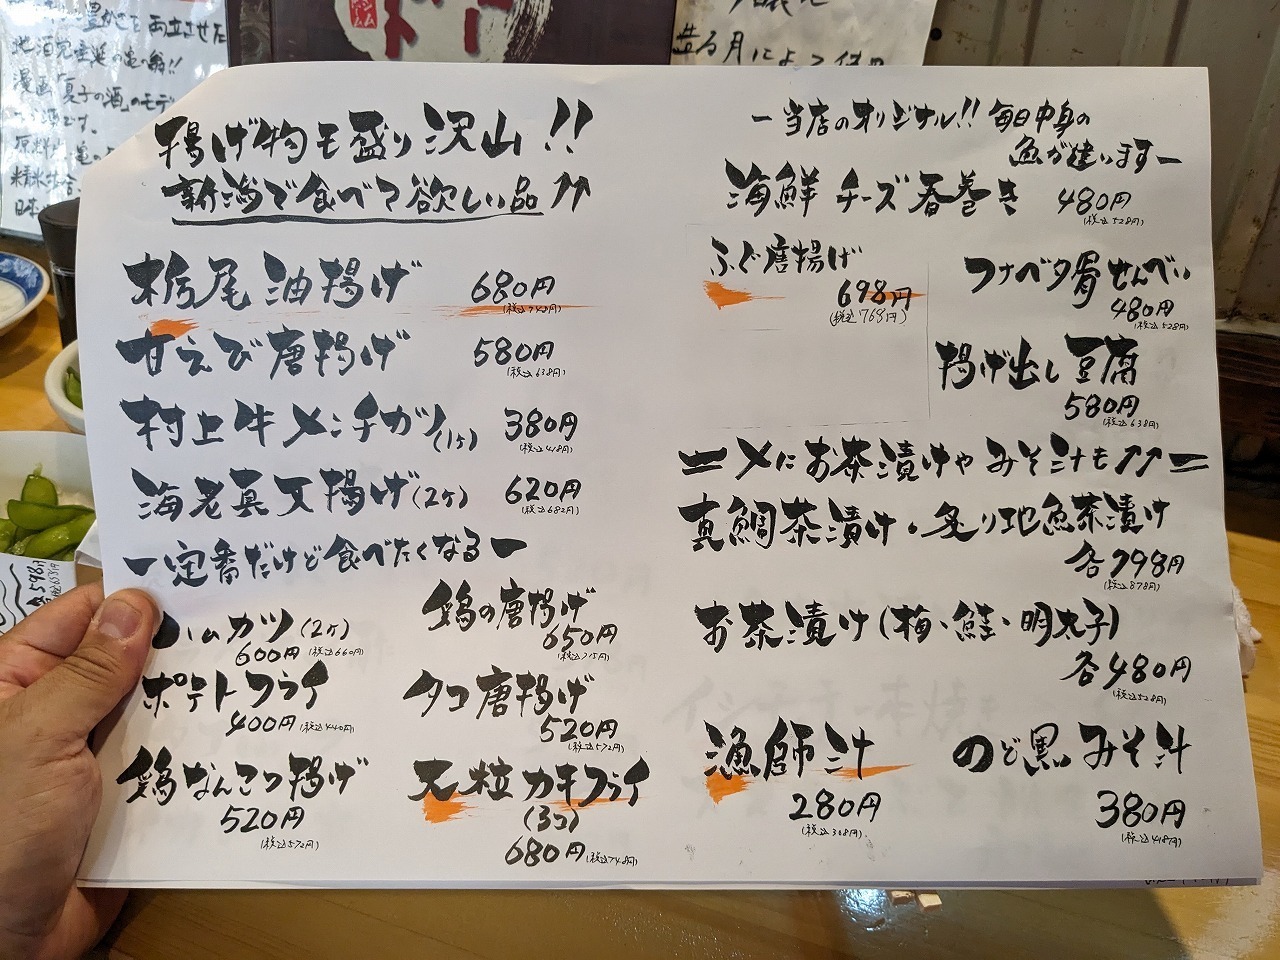 豊かさを両立させた
地酒完全発の亀の翁!!
漫画「夏子の酒」のモデ
揚げ物も盛り沢山!!
新潟で食べて欲しい品↑↑
栃尾油揚げ 680円
甘えび唐揚げ 580円
(税込638円)
村上牛メンチカツ(1ヶ) 380円
(税込418円)
海老真丈揚げ(2ヶ) 620円
(税込682円)
ー定番だけど食べたくなるー
ハムカツ(2ヶ)
600円(税込660円)
鶏の唐揚げ
650円
(税込715円)
ポテトフライ
400円(税込440円)
タコ唐揚げ
520円
(税込572円)
鶏なんこつ揚げ
520円
(税込572円)
大粒カキフライ
(3コ)
680円(税込748円)
ー当店のオリジナル!!毎日中身の
魚が違いますー
海鮮チーズ春巻き 480円
(税込528円)
ふぐ唐揚げ
698円
(税込768円)
フナベタ骨せんべい
480円
(税込528円)
揚げ出し豆腐
580円
(税込638円)
=〆にお茶漬けやみそ汁も↑↑=
真鯛茶漬け・炙り地魚茶漬け
各798円
(税込878円)
お茶漬け(梅・鮭・明太子)
各480円
(税込528円)
漁師汁
280円
(税込308円)
のど黒みそ汁
380円
(税込418円)